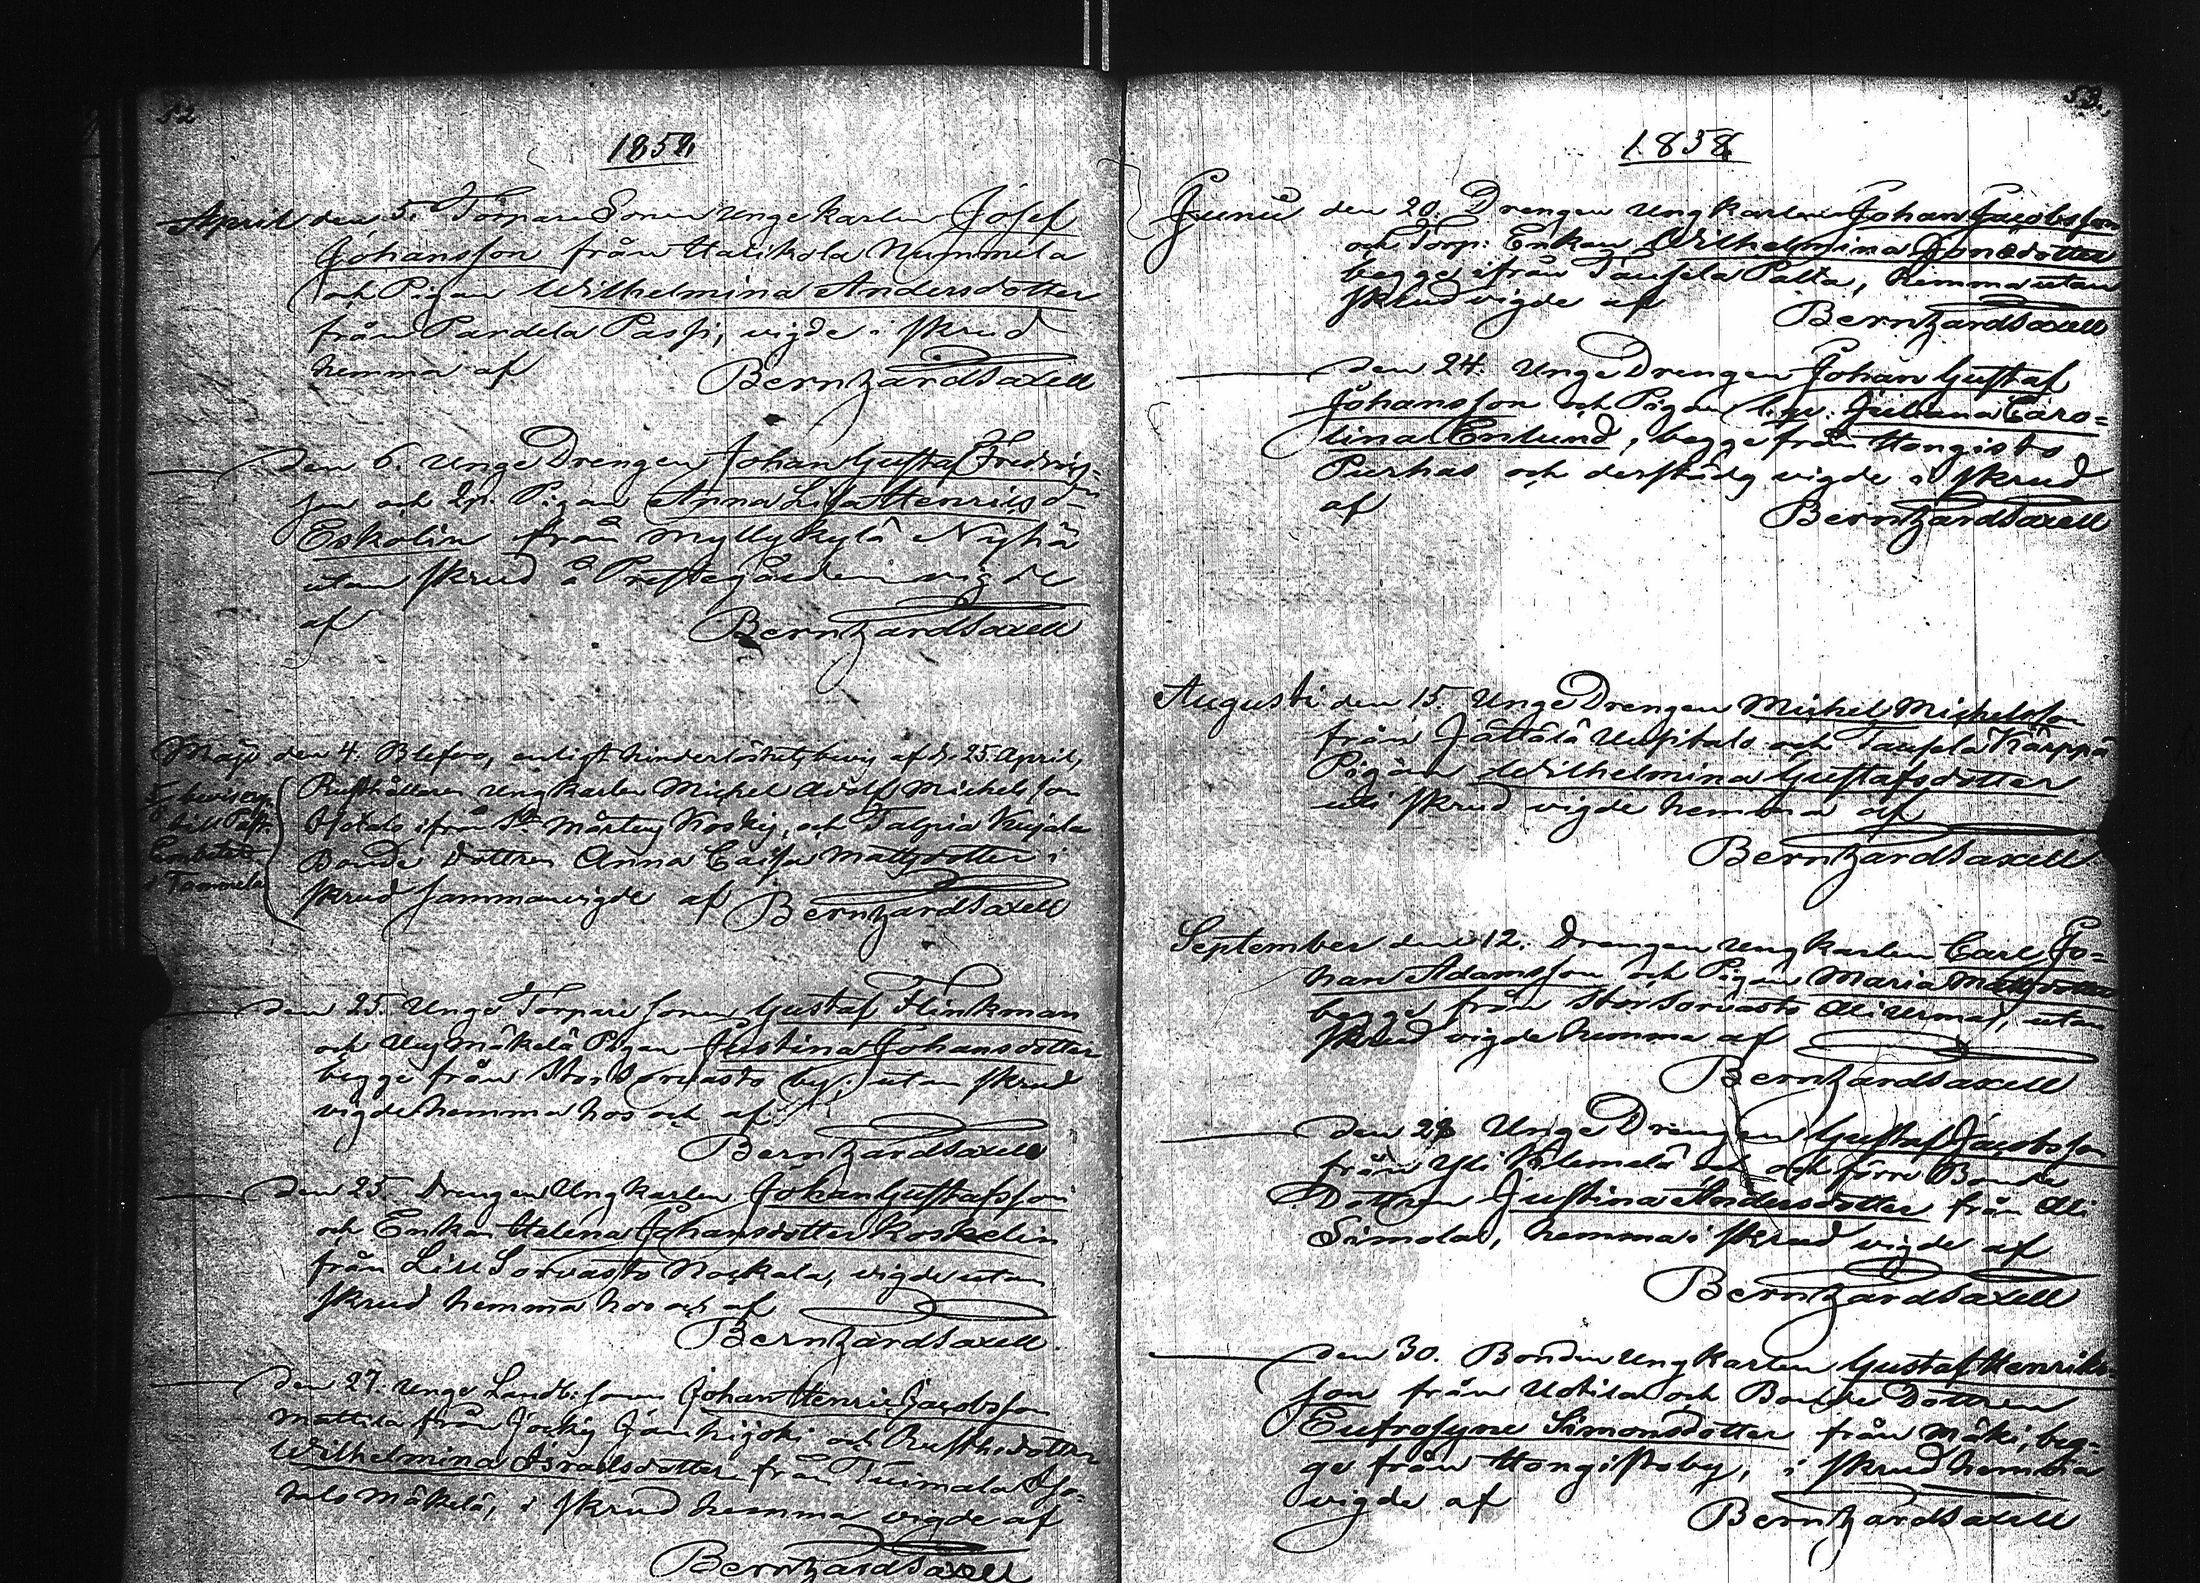 52
1858.
April den 5. Torpare Sonen Unge karlen Josef
Johansson från Halikola Nummela
och Pigan Wilhelmina Andersdotter
från Pardela Passi, vigde i skrud
hemma af Berntzard Saxell
den 6. Unge Drengen Johan Gustaf Fredrics-
son och Pigan Anna Lisa Henricsd:
Eskolin från Myllykylä Nyhä
utan skrud å Prestegården vigde
af Berntzard Saxell
Maji den 4. Blefvo, enligt hinderlöshets bevis af d. 25. April,
Rusthållaren Ungkarlen Michel Adolf Michelsson
Hotalo ifrån St. Mårtens Koskis, och Talpia Kujala
Bonde dottren Anna Caisa Mattsdotter i
skrud sammanvigde af Berntzard Saxell
bevis
till Past:
Embetet
i Tammela
den 25. Unge Torpare sonen Gustaf Flinkman
och Mäkelä Pigan Justina Johansdotter
begge från Stor Sorvasto by: utan skrud
vigde hemma hos och af
Berntzard Saxell
den 25. Drengen Ungkarlen Johan Gustafsson
och Enkan Helena Johansdotter Koskelin
från Lill Sorvasto Nockala, vigde utan
skrud hemma hos och af
Berntzard Saxell.
den 27. Unge Landb: sonen Johan Henric Jacobsson
Mattila från Jockis Jänhijoki och Rusth:dotter
Wilhelmina Israelsdotter från Tuimala Iso-
talo Mäkelä, i skrud hemma vigde af
Berntzard Saxell
53.
1858.
Junii den 20. Drengen Ungkarlen Johan Jacobsson
och Torp: Enkan Wilhelmina Jonædotter
begge ifrån Taufela Palta, hemma utan
skrud vigde af Berntzard Saxell
den 24. Unge Drengen Johan Gustaf
Johansson och Pigan Juliana Caro-
lina Enlund, begge från Hongisto
Purhas och derstädes vigde i skrud
af Berntzard Saxell
Augusti den 15. Unge Drengen Michel Michelsson
från Jättälä Uusitalo och Taufela Kärppä
Pigan Wilhelmina Gustafsdotter
uti skrud vigde hemma af
Berntzard Saxell
September den 12. Drengen Ungkarlen Carl Jo-
han Adamsson och Pigan Maria Mattsdotter
begge från Stor Sorvasto Ali Uerma, utan
skrud vigde hemma af
Berntzard Saxell
den 28 Unge Drengen Gustaf Jacobsson
från Yli Kilemelä och förre Bonde
Dottren Justina Andersdotter från Ali
Simola, hemma i skrud vigde af
Berntzard Saxell
den 30. Bonden Ungkarlen Gustaf Henriks-
son från Uotila och Bonde Dottren
Eufrosyne Simonsdotter från Mäki, beg-
ge från Hongistoby, i skrud hemma
vigde af Berntzard Saxell